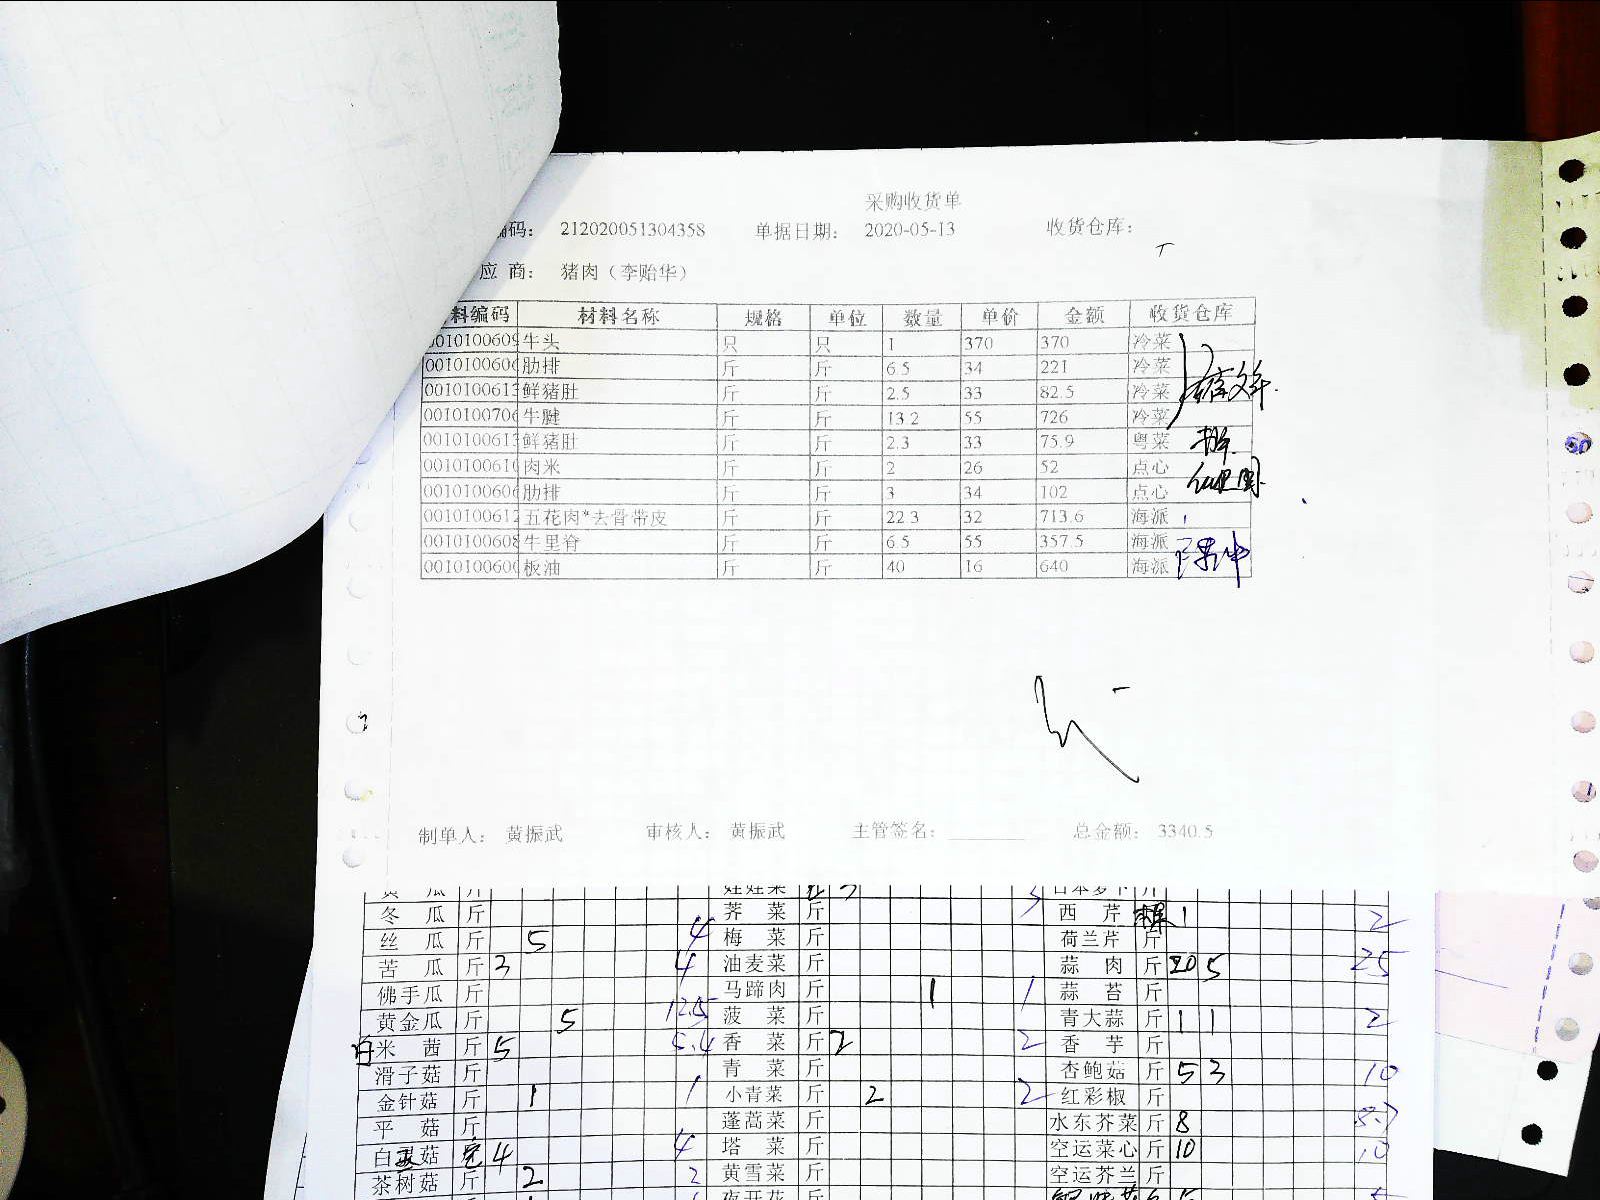 采购收货单
编码： 212020051304358 单据日期： 2020-05-13 收货仓库：
应 商： 猪肉（李贻华）
料编码 材料名称 规格 单位 数量 单价 金额 收货仓库
0010100609 牛头 只 只 1 370 370 冷菜
0010100606 肋排 斤 斤 6.5 34 221 冷菜
0010100613 鲜猪肚 斤 斤 2.5 33 82.5 冷菜
0010100706 牛腱 斤 斤 13.2 55 726 冷菜
0010100613 鲜猪肚 斤 斤 2.3 33 75.9 粤菜
0010100610 肉米 斤 斤 2 26 52 点心
0010100606 肋排 斤 斤 3 34 102 点心
0010100612 五花肉*去骨带皮 斤 斤 22.3 32 713.6 海派
0010100608 牛里脊 斤 斤 6.5 55 357.5 海派
0010100600 板油 斤 斤 40 16 640 海派
制单人： 黄振武 审核人： 黄振武 主管签名： 总金额： 3340.5
冬 瓜 斤 荠 菜 斤 3 西 芹 1 2
丝 瓜 斤 5 4 梅 菜 斤 荷兰芹 斤
苦 瓜 斤 3 4 油麦菜 斤 蒜 肉 斤 20 5 25
佛手瓜 斤 马蹄肉 斤 1 1 蒜 苔 斤
黄金瓜 斤 5 12.5 菠 菜 斤 青大蒜 斤 1 1 2
白米 茜 斤 5 5.4 香 菜 斤 2 2 香 芋 斤
滑子菇 斤 青 菜 斤 杏鲍菇 斤 5 3 10
金针菇 斤 1 1 小青菜 斤 2 2 红彩椒 斤
平 菇 斤 蓬蒿菜 斤 水东芥菜 斤 8 8.7
白玉菇 4 4 塔 菜 斤 空运菜心 斤 10 10
茶树菇 斤 2 2 黄雪菜 斤 空运芥兰 斤